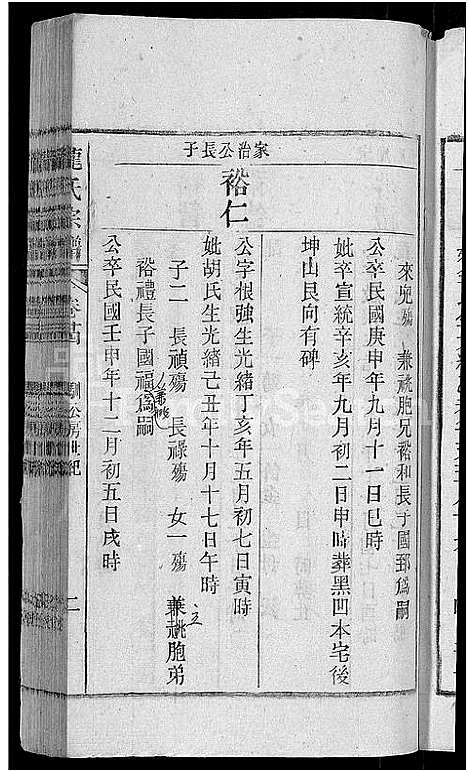 來兜殤 兼祧胞兄裕和長子國郅爲嗣
公卒民國庚申年九月十一日巳時
妣卒宣統辛亥年九月初二日申時葬黑凹本宅後
坤山艮向有碑
家治公長子
裕仁
公字根強生光緒丁亥年五月初七日寅時
妣胡氏生光緒己丑年十月十七日午時
子二 長禎殤 長祿殤 女一殤 立兼祧胞弟
裕禮長子國福爲嗣兼祧
公卒民國壬申年十二月初五日戌時
龍氏宗譜
卷
公房世紀
二